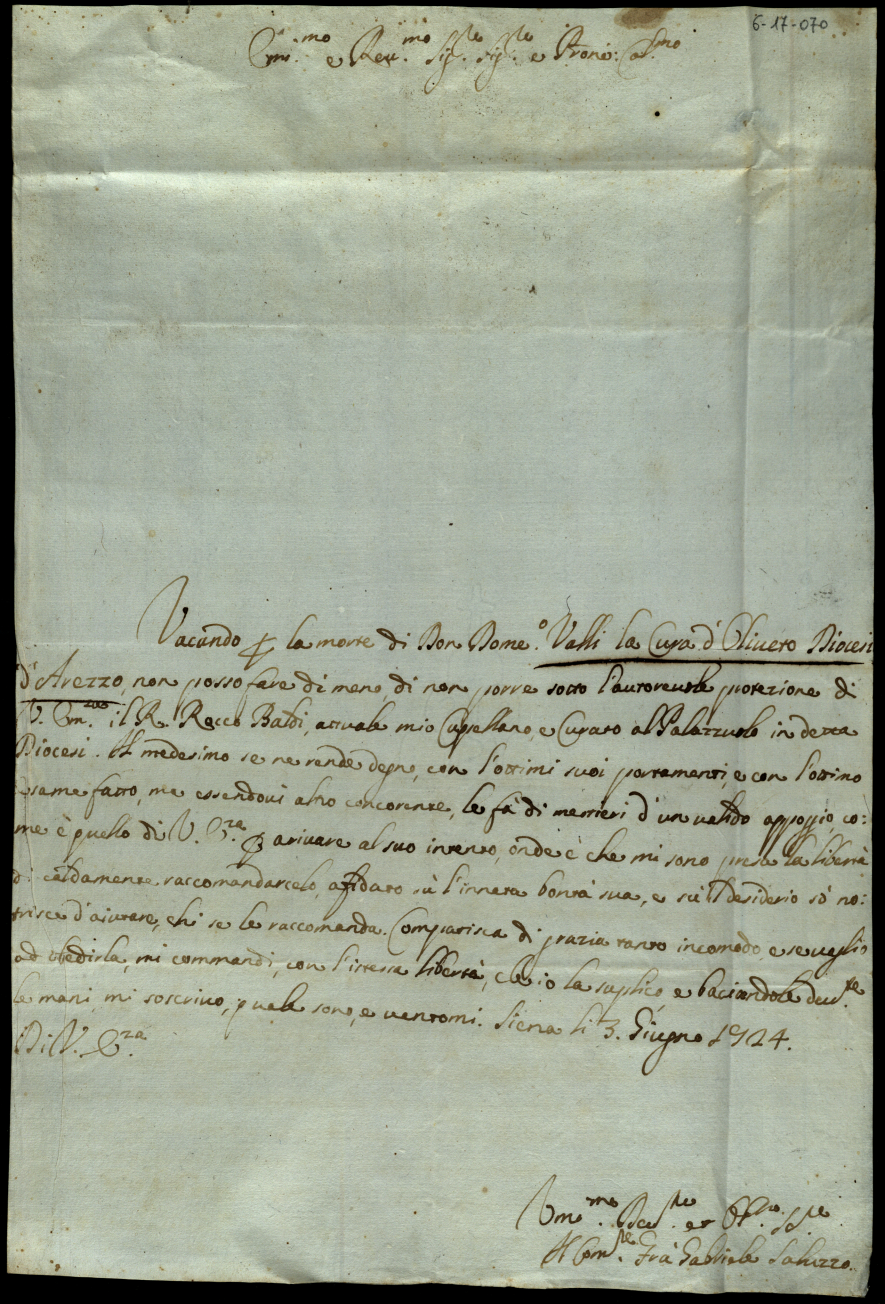 6-17-070
Em.mo e Reu.mo Sig.re Sig.re e Prone: C.mo
Vacando p la morte di Don Dome.o Valli la Cura d'Oliueto Diocesi
d'Arezzo, non posso fare di meno di non porre sotto l'autoreuole protezione di
V. Em.za il R. Rocco Baldi, attuale mio Capellano, e Curato al Palazzuolo in detta
Diocesi. Il medesimo se ne rende degno, con l'ottimi suoi portamenti, e con l'ottimo
esame fatto, ma essendoui altro concorente, le fà di mestieri d'un ualido appoggio, co:
me è quello di V. E.za p ariuare al suo intento, onde è che mi sono presa la libertà
di caldamente raccomandarcelo, affidato sù l'innata bontà sua, e sù'l desiderio sò no:
trisce d'aiutare, chi se le raccomanda. Compatisca di grazia tanto incomodo, e se uaglio
ad vbedirla, mi commandi, con l'istessa libertà, che io la suplico, e baciandole deu.te
le mani, mi soscriuo, quale sono, e uantomi. Siena li 3. Giugno 1724.
Di V. E.za
Vm.mo Deu.mo et Ob.mo S.re
Il Com.re Frà Gabriele Saluzzo.